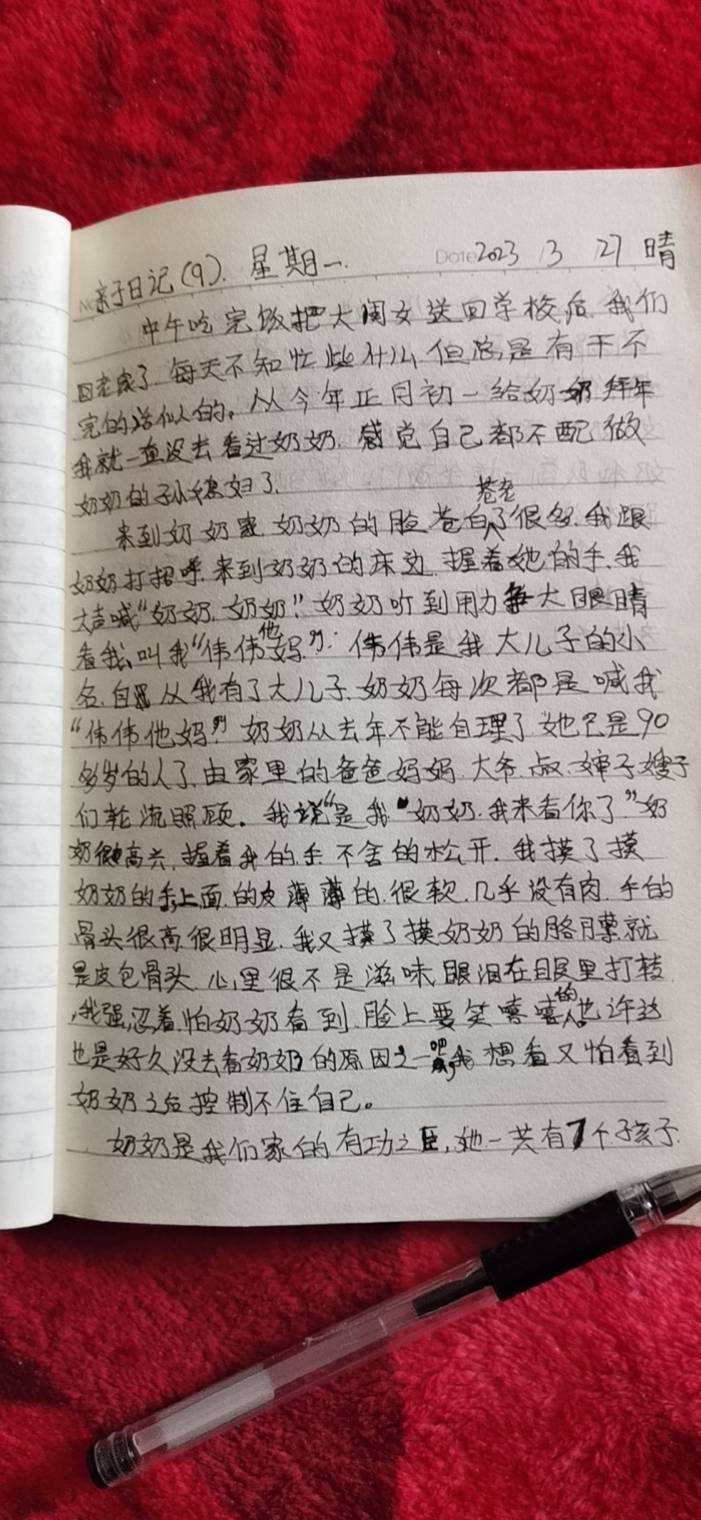 亲子日记(9). 星期一. Date 2023 3 27 晴
中午吃完饭把大闺女送回学校后.我们
回老家了.每天不知忙些什么.但总是有干不
完的活似的.从今年正月初一给奶奶拜年
我就一直没去看过奶奶.感觉自己都不配做
奶奶的孙媳妇了.
来到奶奶家.奶奶的脸苍白苍老了很多.我跟
奶奶打招呼.来到奶奶的床边.握着她的手.我
大声喊“奶奶.奶奶!”奶奶听到用力争大眼睛
看我,叫我“伟伟他妈”.伟伟是我大儿子的小
名.自从我有了大儿子.奶奶每次都是喊我
“伟伟他妈”奶奶从去年不能自理了.她已是90
多岁的人了.由家里的爸爸妈妈.大爷.叔.婶子嫂子
们轮流照顾.我说“是我”奶奶.我来看你了”奶
奶很高兴.握着我的手不舍的松开.我摸了摸
奶奶的手上面.的皮薄薄的.很软.几乎没有肉.手的
骨头很高很明显.我又摸了摸奶奶的胳膊就
是皮包骨头.心里很不是滋味.眼泪在眼里打转
,我强忍着.怕奶奶看到.脸上要笑嘻嘻的.也许这
也是好久没去看奶奶的原因之一吧,我想看又怕看到
奶奶之后控制不住自己。
奶奶是我们家的有功之臣,她一共有7个子孩子.